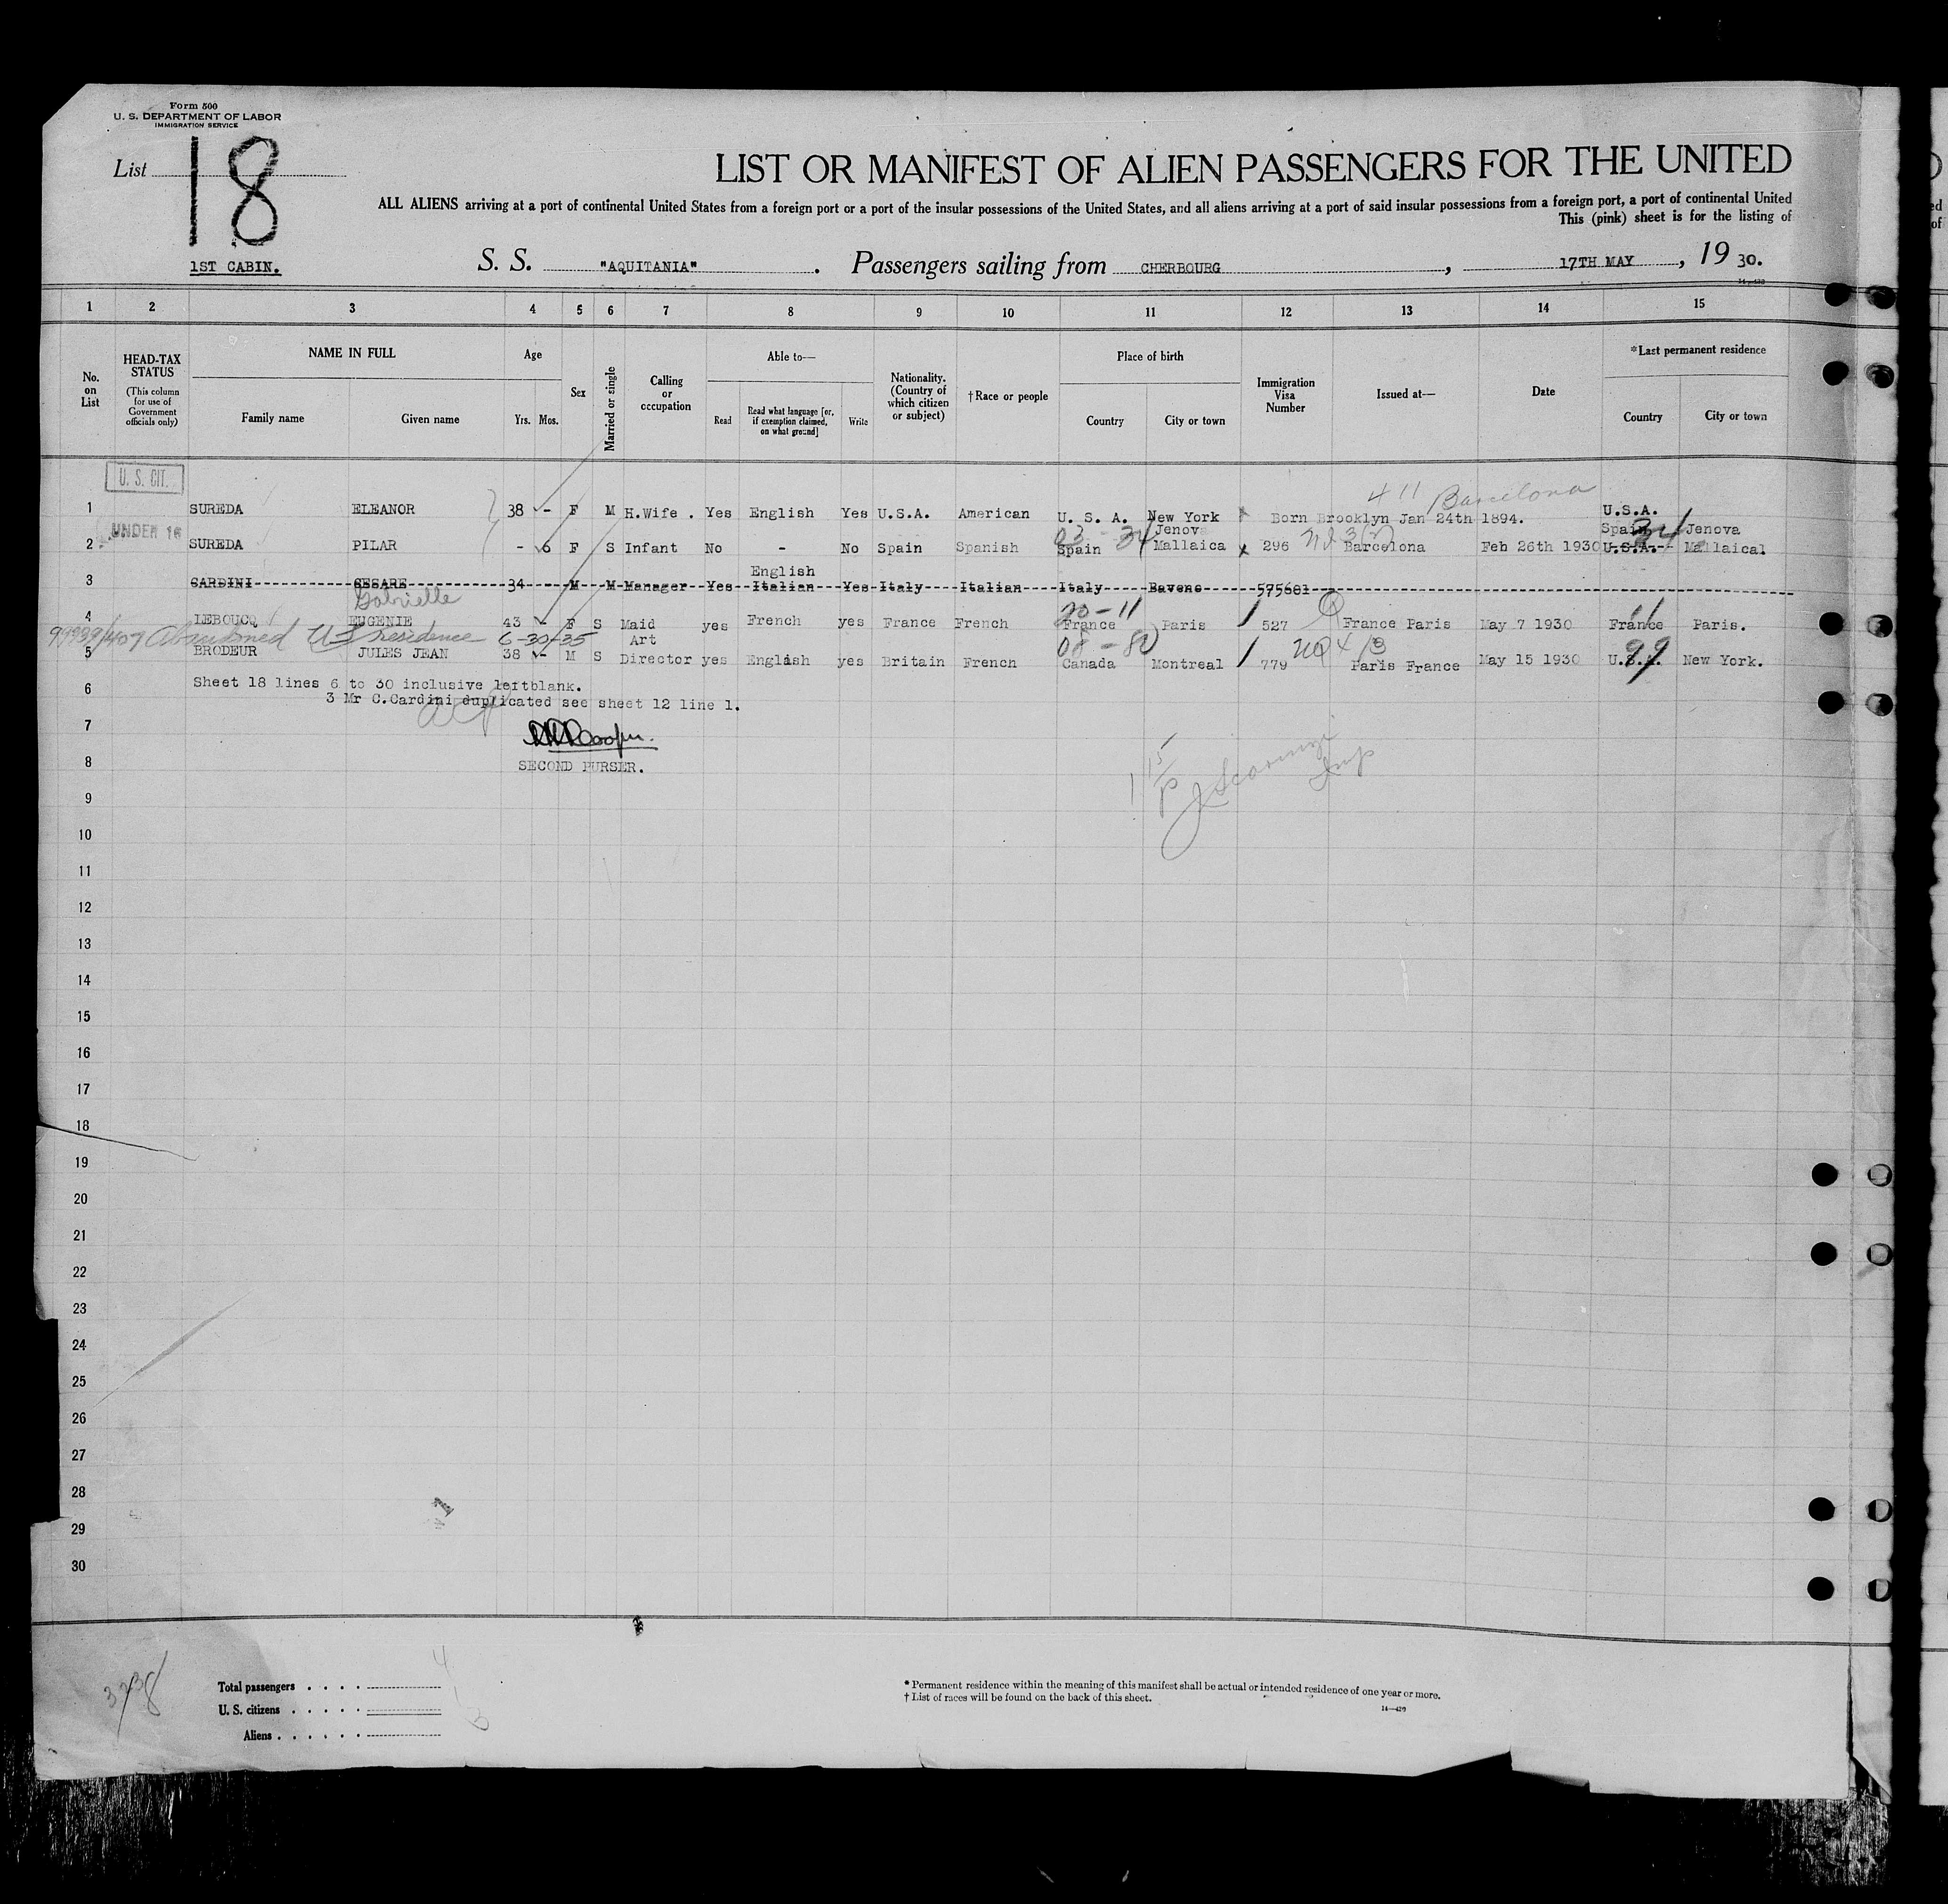 Form 500
U. S. DEPARTMENT OF LABOR
IMMIGRATION SERVICE
List 18
LIST OR MANIFEST OF ALIEN PASSENGERS FOR THE UNITED
ALL ALIENS arriving at a port of continental United States from a foreign port or a port of the insular possessions of the United States, and all aliens arriving at a port of said insular possessions from a foreign port, a port of continental United
This (pink) sheet is for the listing of
1ST CABIN.
S. S. "AQUITANIA". Passengers sailing from CHERBOURG, 17TH MAY, 19 30.
1 2 3 4 5 6 7 8 9 10 11 12 13 14 15
No. on List
HEAD-TAX STATUS (This column for use of Government officials only)
NAME IN FULL
Family name Given name
Age
Yrs. Mos.
Sex
Married or single
Calling or occupation
Able to—
Read
Read what language [or, if exemption claimed, on what ground]
Write
Nationality. (Country of which citizen or subject)
†Race or people
Place of birth
Country City or town
Immigration Visa Number
Issued at—
Date
*Last permanent residence
Country City or town
U. S. CIT.
4 11 Barcelona
1 SUREDA ELEANOR 38 - F M H.Wife . Yes English Yes U.S.A. American U. S. A. New York Born Brooklyn Jan 24th 1894. U.S.A.
UNDER 16
03 - 34 Jenova Spain 34 Jenova
2 SUREDA PILAR - 6 F S Infant No - No Spain Spanish Spain Mallaica x 296 Barcelona Feb 26th 1930 U.S.A. Mallaical
English
3 CARDINI CESARE 34 M M Manager Yes Italian Yes Italy Italian Italy Baveno 575681
Gabrielle
20-11
4 LEBOUCQ EUGENIE 43 F S Maid yes French yes France French France Paris 527 France Paris May 7 1930 France Paris.
99939/407 Abandoned US residence 6-30-35 Art
08-80
5 BRODEUR JULES JEAN 38 - M S Director yes English yes Britain French Canada Montreal 779 Paris France May 15 1930 U.S.A. 99 New York.
6 Sheet 18 lines 6 to 30 inclusive leftblank.
3 Mr C.Cardini duplicated see sheet 12 line 1.
7
SECOND PURSER.
8
9
10
11
12
13
14
15
16
17
18
19
20
21
22
23
24
25
26
27
28
29
30
Total passengers . . . . 4
U. S. citizens . . . . . 1
Aliens . . . . . . 3
* Permanent residence within the meaning of this manifest shall be actual or intended residence of one year or more.
† List of races will be found on the back of this sheet.
14—429